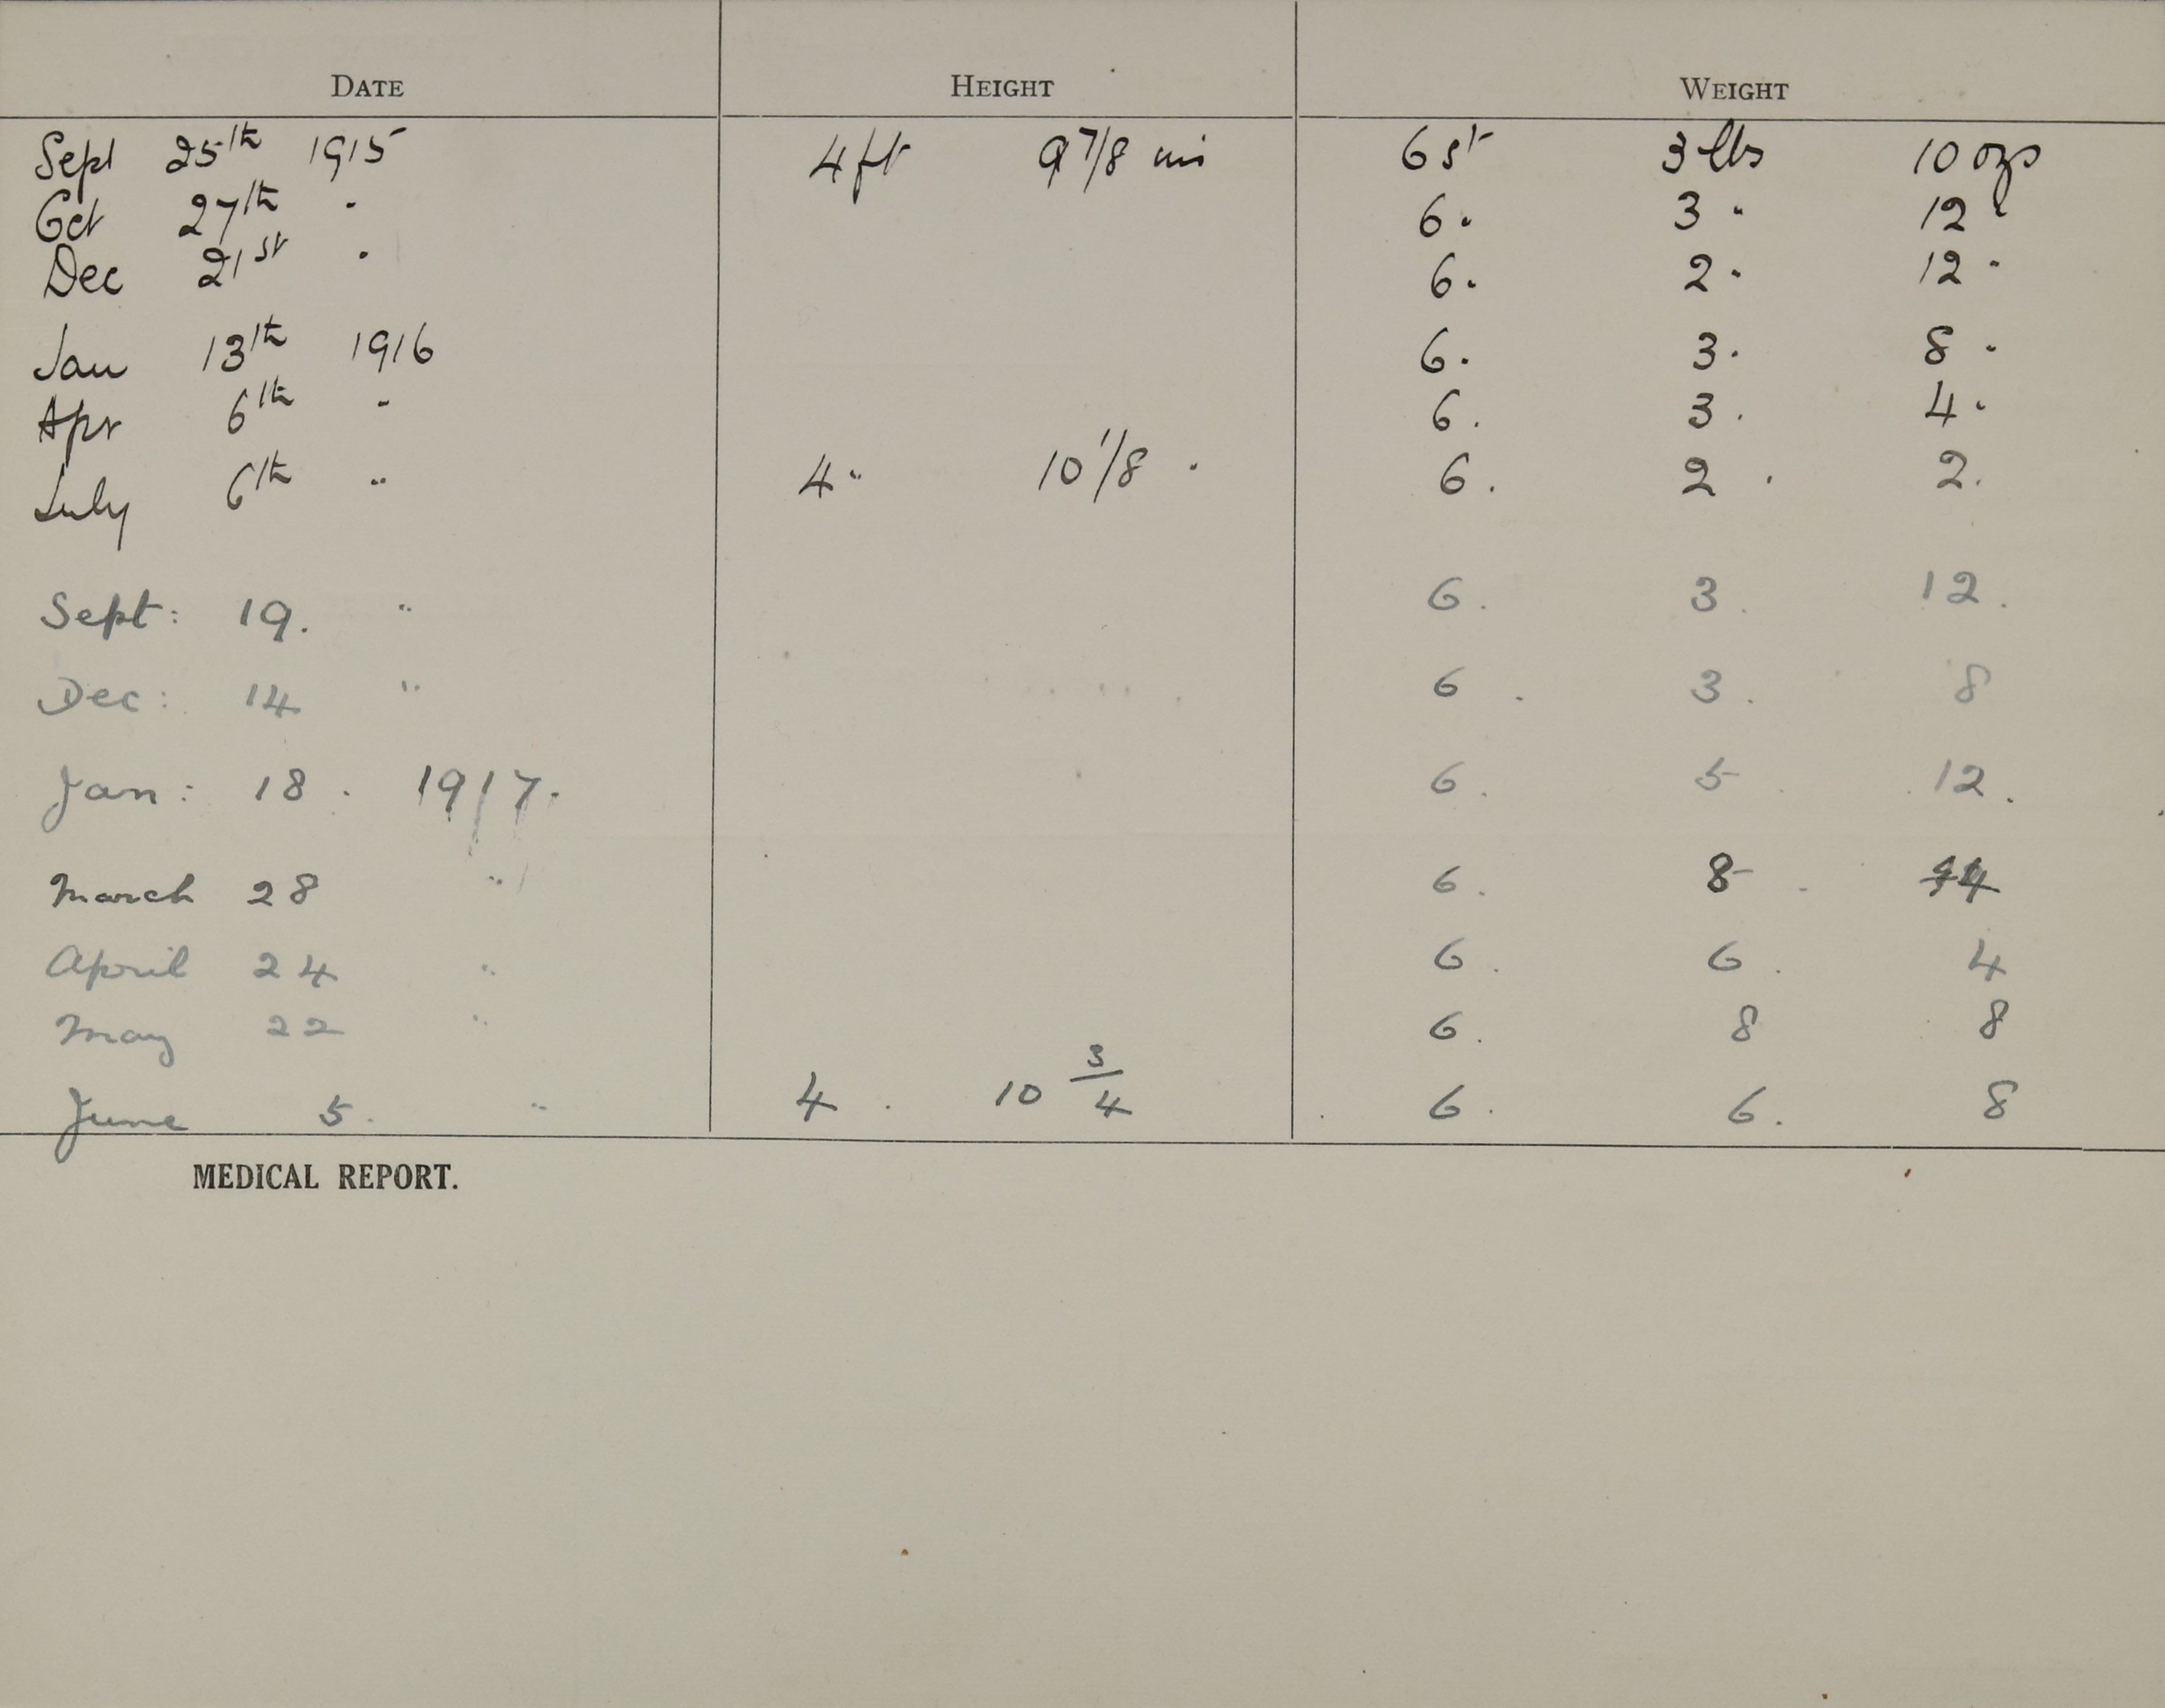 DATE HEIGHT WEIGHT
Sept 25th 1915 4 ft 9 7/8 ins 6 st 3 lbs 10 ozs
Oct 27th " 6 " 3 " 12 "
Dec 21st " 6 " 2 " 12 "
Jan 13th 1916 6 " 3 " 8 "
Apr 6th " 6 . 3 . 4 "
July 6th " 4 " 10 1/8 " 6 . 2 . 2 .
Sept: 19. " 6 . 3 . 12 .
Dec: 14 " 6 . 3 . 8
Jan: 18 . 1917. 6 . 5 . 12 .
March 28 " 6 . 8 - 4
April 24 " 6 . 6 . 4
May 22 " 6 . 8 8
June 5. " 4 . 10 3/4 6 . 6 . 8
MEDICAL REPORT.